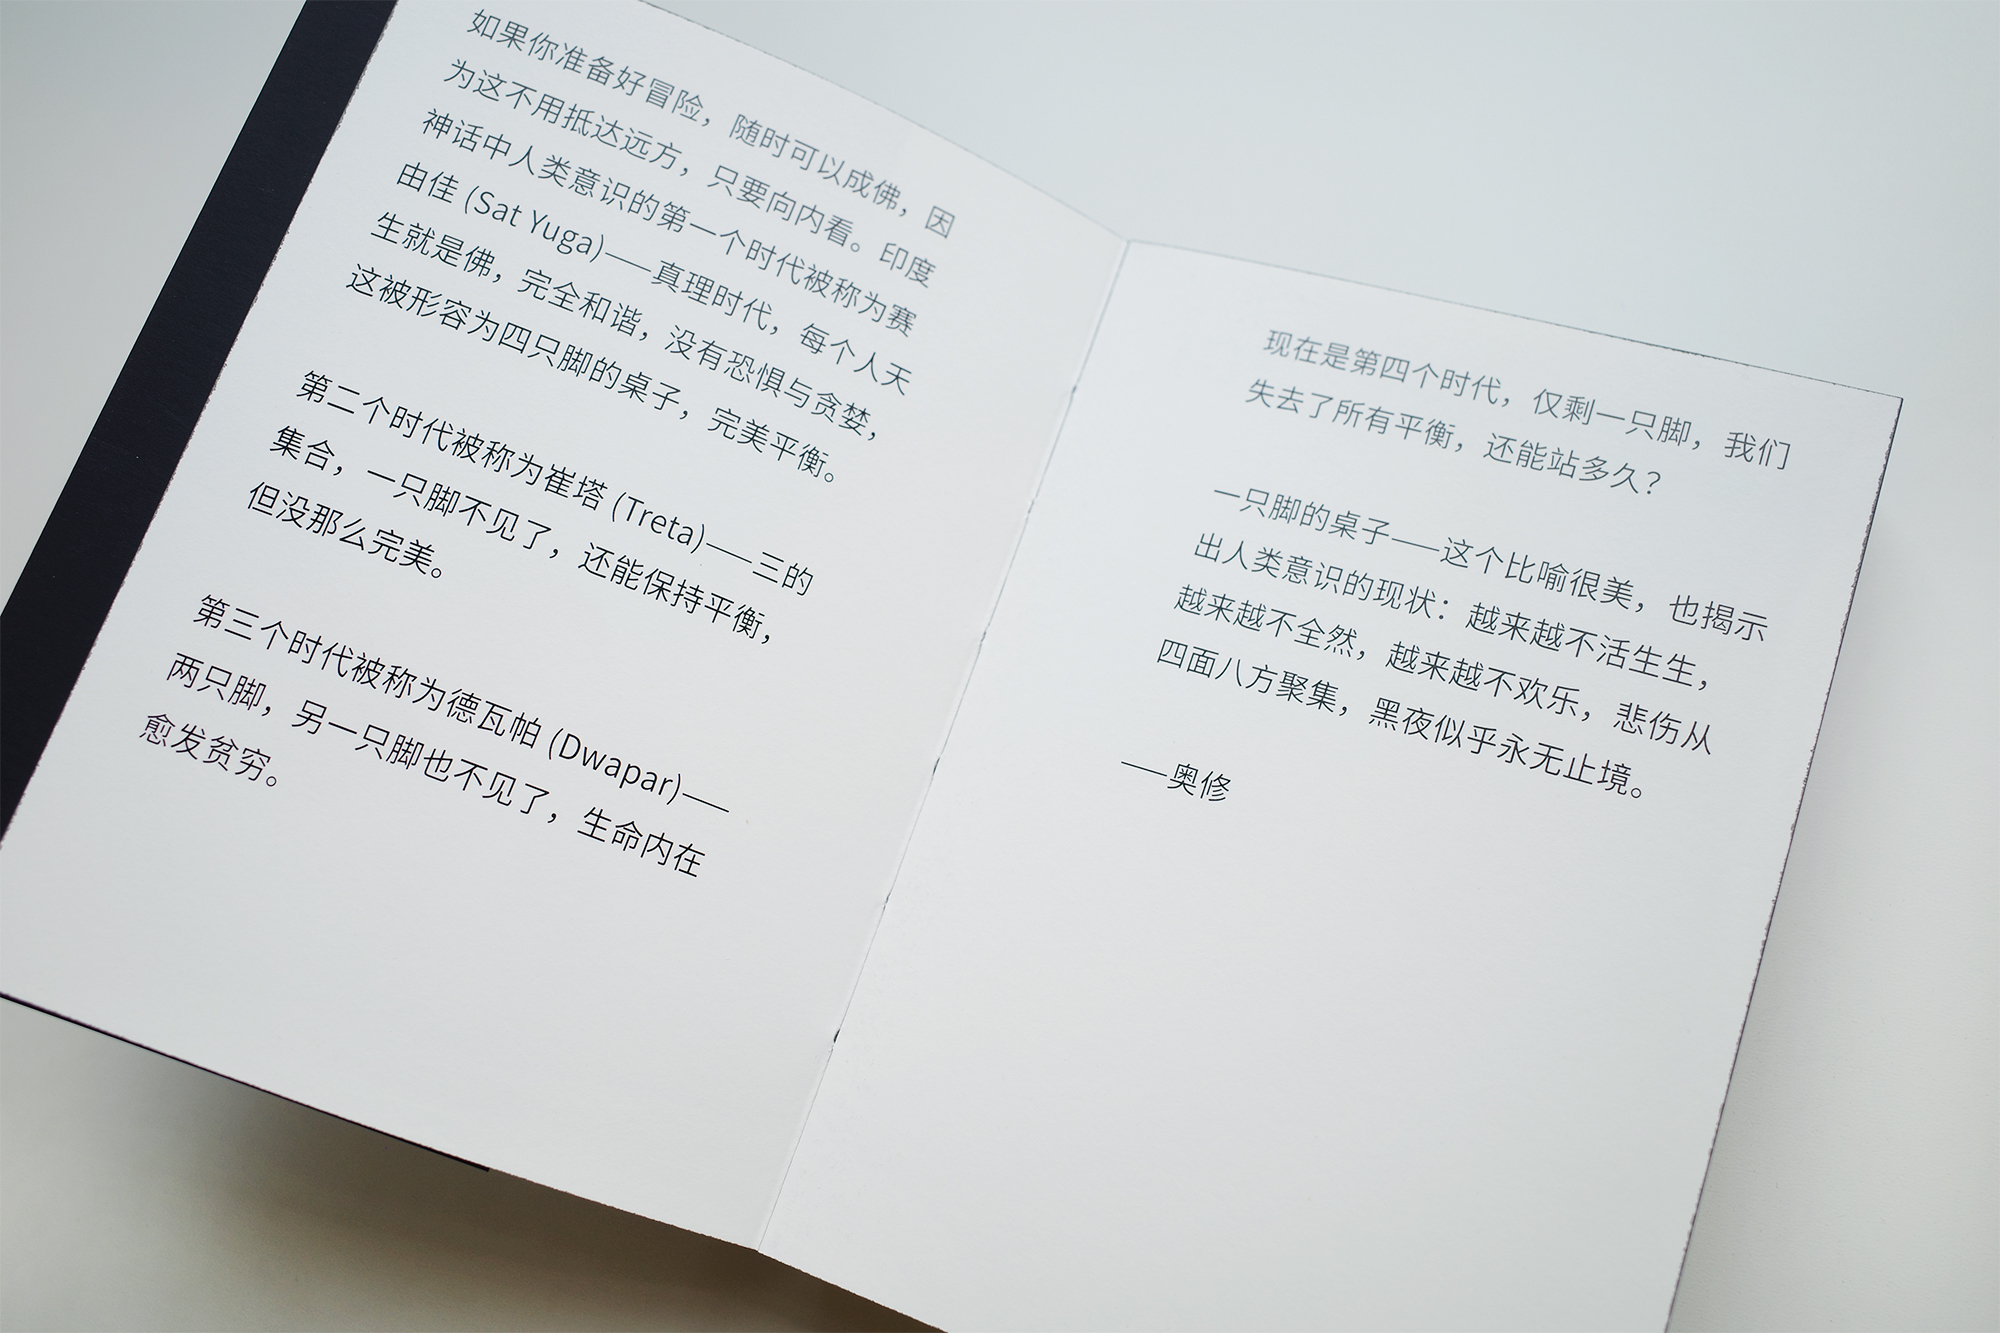 如果你准备好冒险，随时可以成佛，因
为这不用抵达远方，只要向内看。印度
神话中人类意识的第一个时代被称为赛
由佳 (Sat Yuga)——真理时代，每个人天
生就是佛，完全和谐，没有恐惧与贪婪，
这被形容为四只脚的桌子，完美平衡。
第二个时代被称为崔塔 (Treta)——三的
集合，一只脚不见了，还能保持平衡，
但没那么完美。
第三个时代被称为德瓦帕 (Dwapar)——
两只脚，另一只脚也不见了，生命内在
愈发贫穷。
现在是第四个时代，仅剩一只脚，我们
失去了所有平衡，还能站多久？
一只脚的桌子——这个比喻很美，也揭示
出人类意识的现状：越来越不活生生，
越来越不全然，越来越不欢乐，悲伤从
四面八方聚集，黑夜似乎永无止境。
——奥修